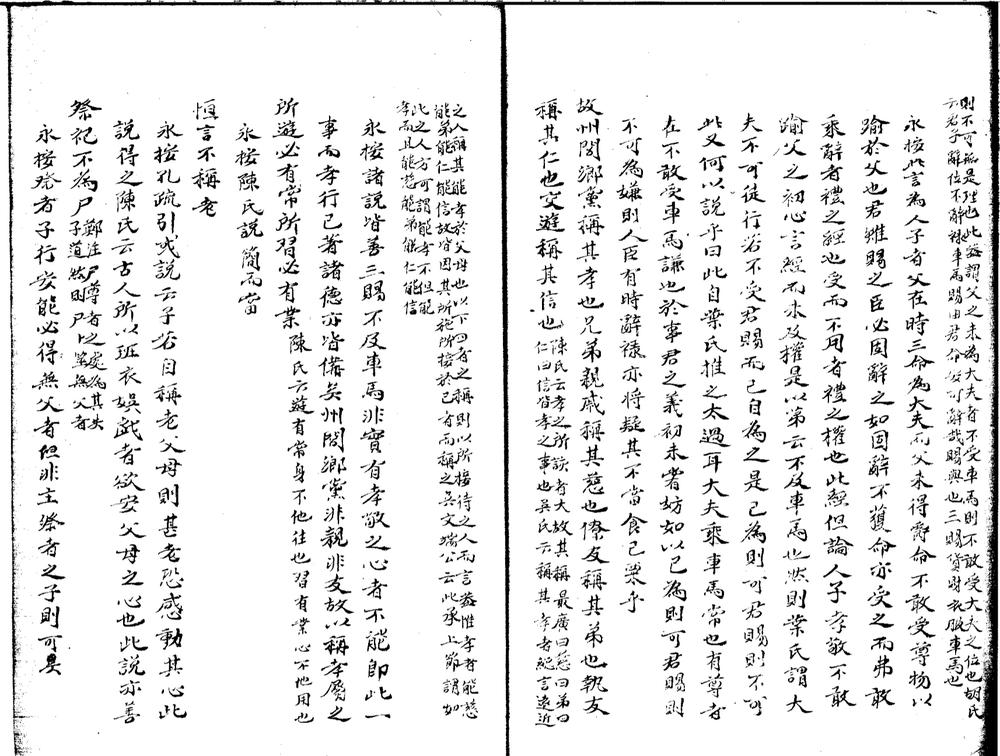 則不可孤是陞也此蓋謂父之未為大夫者不受車馬則不敢受大夫之位也胡氏
云君子辭位不辭祿車馬賜由君命安可辭哉賜與也三賜貨財衣服車馬也
永按此言為人子者父在時三命為大夫而父未得爵命不敢受尊物以
踰於父也君雖賜之臣必固辭之如固辭不獲命亦受之而弗敢
乘辭者禮之經也受而不用者禮之權也此經但論人子孝敬不敢
踰父之初心言經而未及權是以第云不及車馬也然則葉氏謂大
夫不可徒行若不受君賜而已自為之是己為則可君賜則不可
此又何以說乎曰此自葉氏推之太過耳大夫乘車馬常也有尊者
在不敢受車馬謙也於事君之義初未嘗妨如以己為則可君賜則
不可為嫌則人臣有時辭祿亦將疑其不當食己粟乎
故州閭鄉黨稱其孝也兄弟親戚稱其慈也僚友稱其弟也執友
稱其仁也交遊稱其信也
陳氏云孝之所該者大故其稱最廣曰慈曰弟曰
仁曰信皆孝之事也吳氏云稱其孝者總言遠近
之人稱其能孝於父母也以下四者之稱則以所接待之人而言蓋惟孝者能慈
能弟能仁能信故皆因其所施所接於己者而稱之吳文端公云此承上節謂如
此之人方可謂能孝不但能
孝而且能慈能弟能仁能信
永按諸說皆善三賜不及車馬非實有孝敬之心者不能即此一
事而孝行已著諸德亦皆備矣州閭鄉黨非親非友故以稱孝屬之
所遊必有常所習必有業
陳氏云遊有常身不他往也習有業心不他用也
永按陳氏說簡而當
恒言不稱老
永按孔疏引或說云子若自稱老父母則甚老恐感動其心此
說得之陳氏云古人所以班衣娛戲者欲安父母之心也此說亦善
祭祀不為尸
鄭注尸尊者之處為其失
子道然則尸卜筮無父者
永按祭者子行安能必得無父者但非主祭者之子則可耳